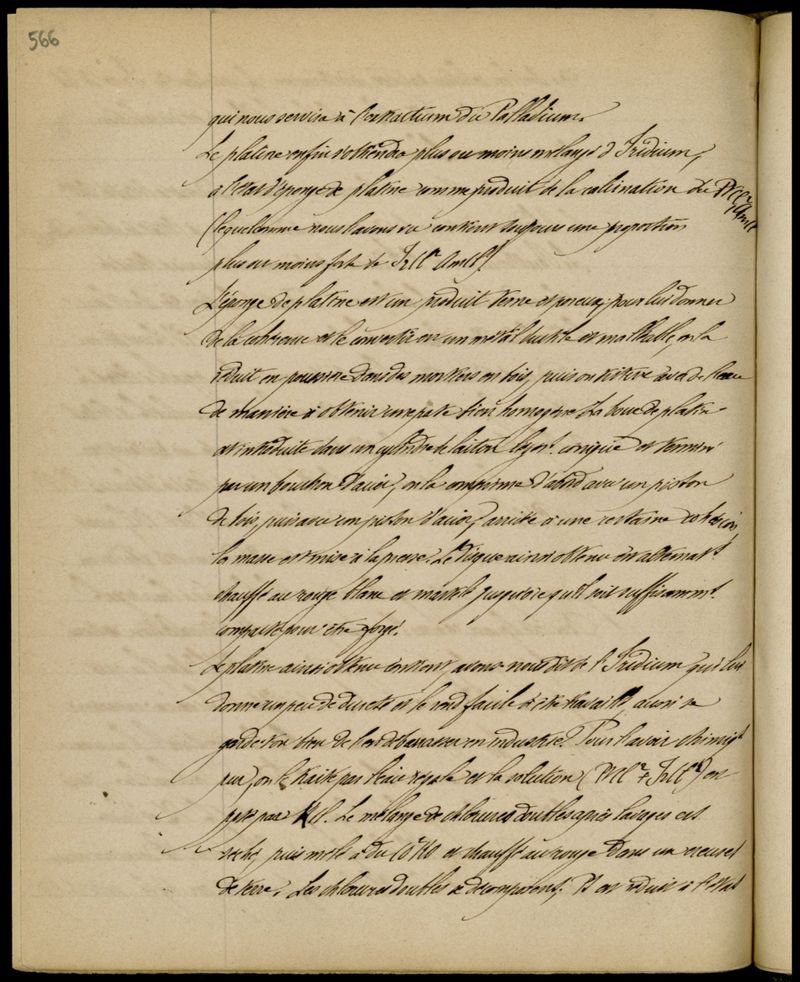 566
qui nous servira à l'extraction du Palladium.
Le platine enfin s'obtiendra plus ou moins mélangé d'Iridium,
à l'état d'éponge de platine comme produit de la calcination du PtCl² AmCl
(lequel comme nous l'avons vu contient toujours une proportion
plus ou moins forte de IrCl² AmCl)
L'éponge de platine est un produit terne et poreux; pour lui donner
de la cohérence et le convertir en un métal ductile et malléable, on la
réduit en poussière dans des mortiers en bois, puis on triture avec de l'eau
de manière à obtenir une pate bien homogène. La boue de platine
est introduite dans un cylindre de laiton légert. conique et terminé
par un bouchon d'acier, on la comprime d'abord avec un piston
de bois, puis avec un piston d'acier, arrivée à une certaine cohésion,
la masse est mise à la presse. Le disque ainsi obtenu est alternat
chauffé au rouge blanc et martelé jusqu'à ce qu'il soit suffisammt.
compacte pour être forgé.
Le platine ainsi obtenu contient, avons nous dit de l'Iridium qui lui
donne un peu de dureté et le rend facile à être travaillé, aussi se
garde t'on bien de l'en débarrasser en industrie. Pour l'avoir chimiqt
pur, on le traite par l'eau régale et la solution (PtCl² + IrCl²) est
pptée par KCl. Le mélange de chlorures doubles après lavages est
séché, puis mêlé à du CO²KO et chauffé au rouge dans un creuset
de terre. Les chlorures doubles se décomposent; Pt est réduit à l'état